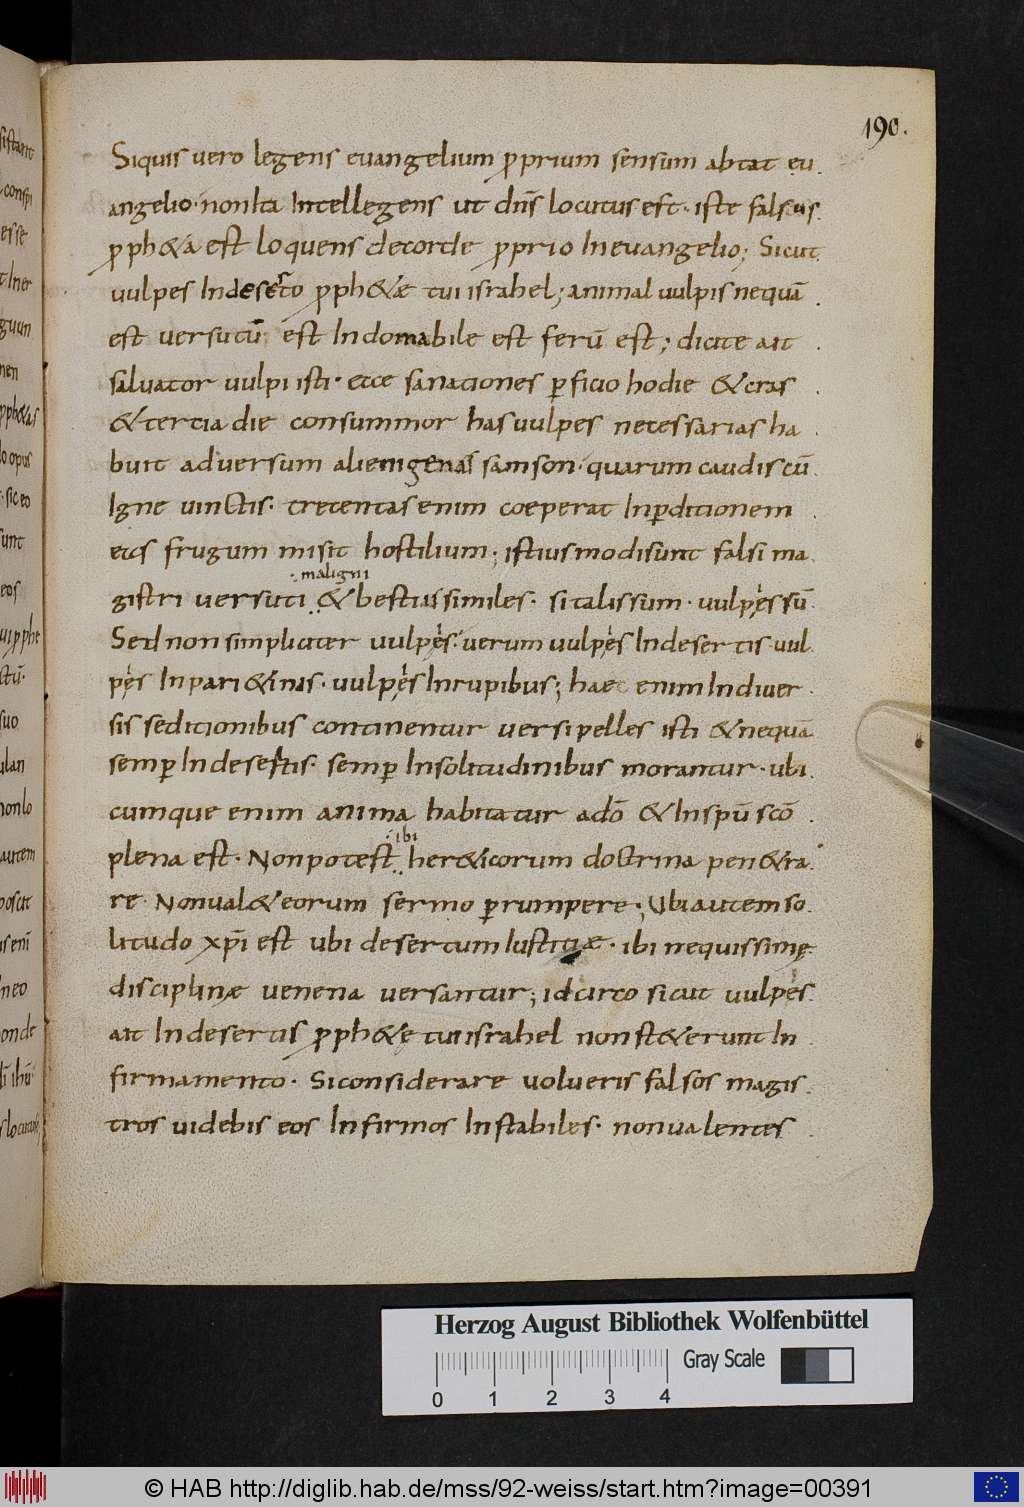 190.
Siquis vero legens euangelium ꝓprium sensum abtat eu
angelio· nonita Intellegens ut dn̄s locutus est· iste falsus
ꝓph&a est loquens decorde ꝓprio Ineuangelio; Sicut
vulpes Indeserto ꝓph&ae tui israhel; animal uulpis nequā
est versutū est Indomabile est ferū est; dicite ait
saluator uulpi isti· ecce sanationes ꝑficio hodie & cras
& tertia die consummor has uulpes necessarias ha
buit adversum alienigenas samson· quarum caudis cū
Igne uinctis· trecentas enim coeperat Inꝑditionem
eas frugum misit hostilium; istiusmodi sunt falsi ma
maligni
gistri versuti & bestiis similes· si talis sum· uulpęs sū
Sed non simpliciter uulpęs· verum uulpęs Indesertis· uul
pęs Inpari&inis· uulpęs Inrupibus; haec enim Indiver
sis seditionibus continentur versipelles isti & nequā
semꝑ Indesertis· semꝑ Insolitudinibus morantur· ubi
cumque enim anima habitatur adō & Inspū scō
ibi
plena est· Non potest her&icorum doctrina pen&ra
re· Nonual& eorum sermo ꝑrumpere; Ubi autem so
litudo xp̄i est ubi desertum Iustitiae· ibi nequissimę
disciplinae venena versantur; idcirco sicut uulpęs
ait Indesertis ꝓph&ę tui israhel non st&erunt In
firmamento· Si considerare volueris falsos magis
tros uidebis eos Infirmos Instabiles· non valentes
Herzog August Bibliothek Wolfenbüttel
Gray Scale
0 1 2 3 4
© HAB http://diglib.hab.de/mss/92-weiss/start.htm?image=00391